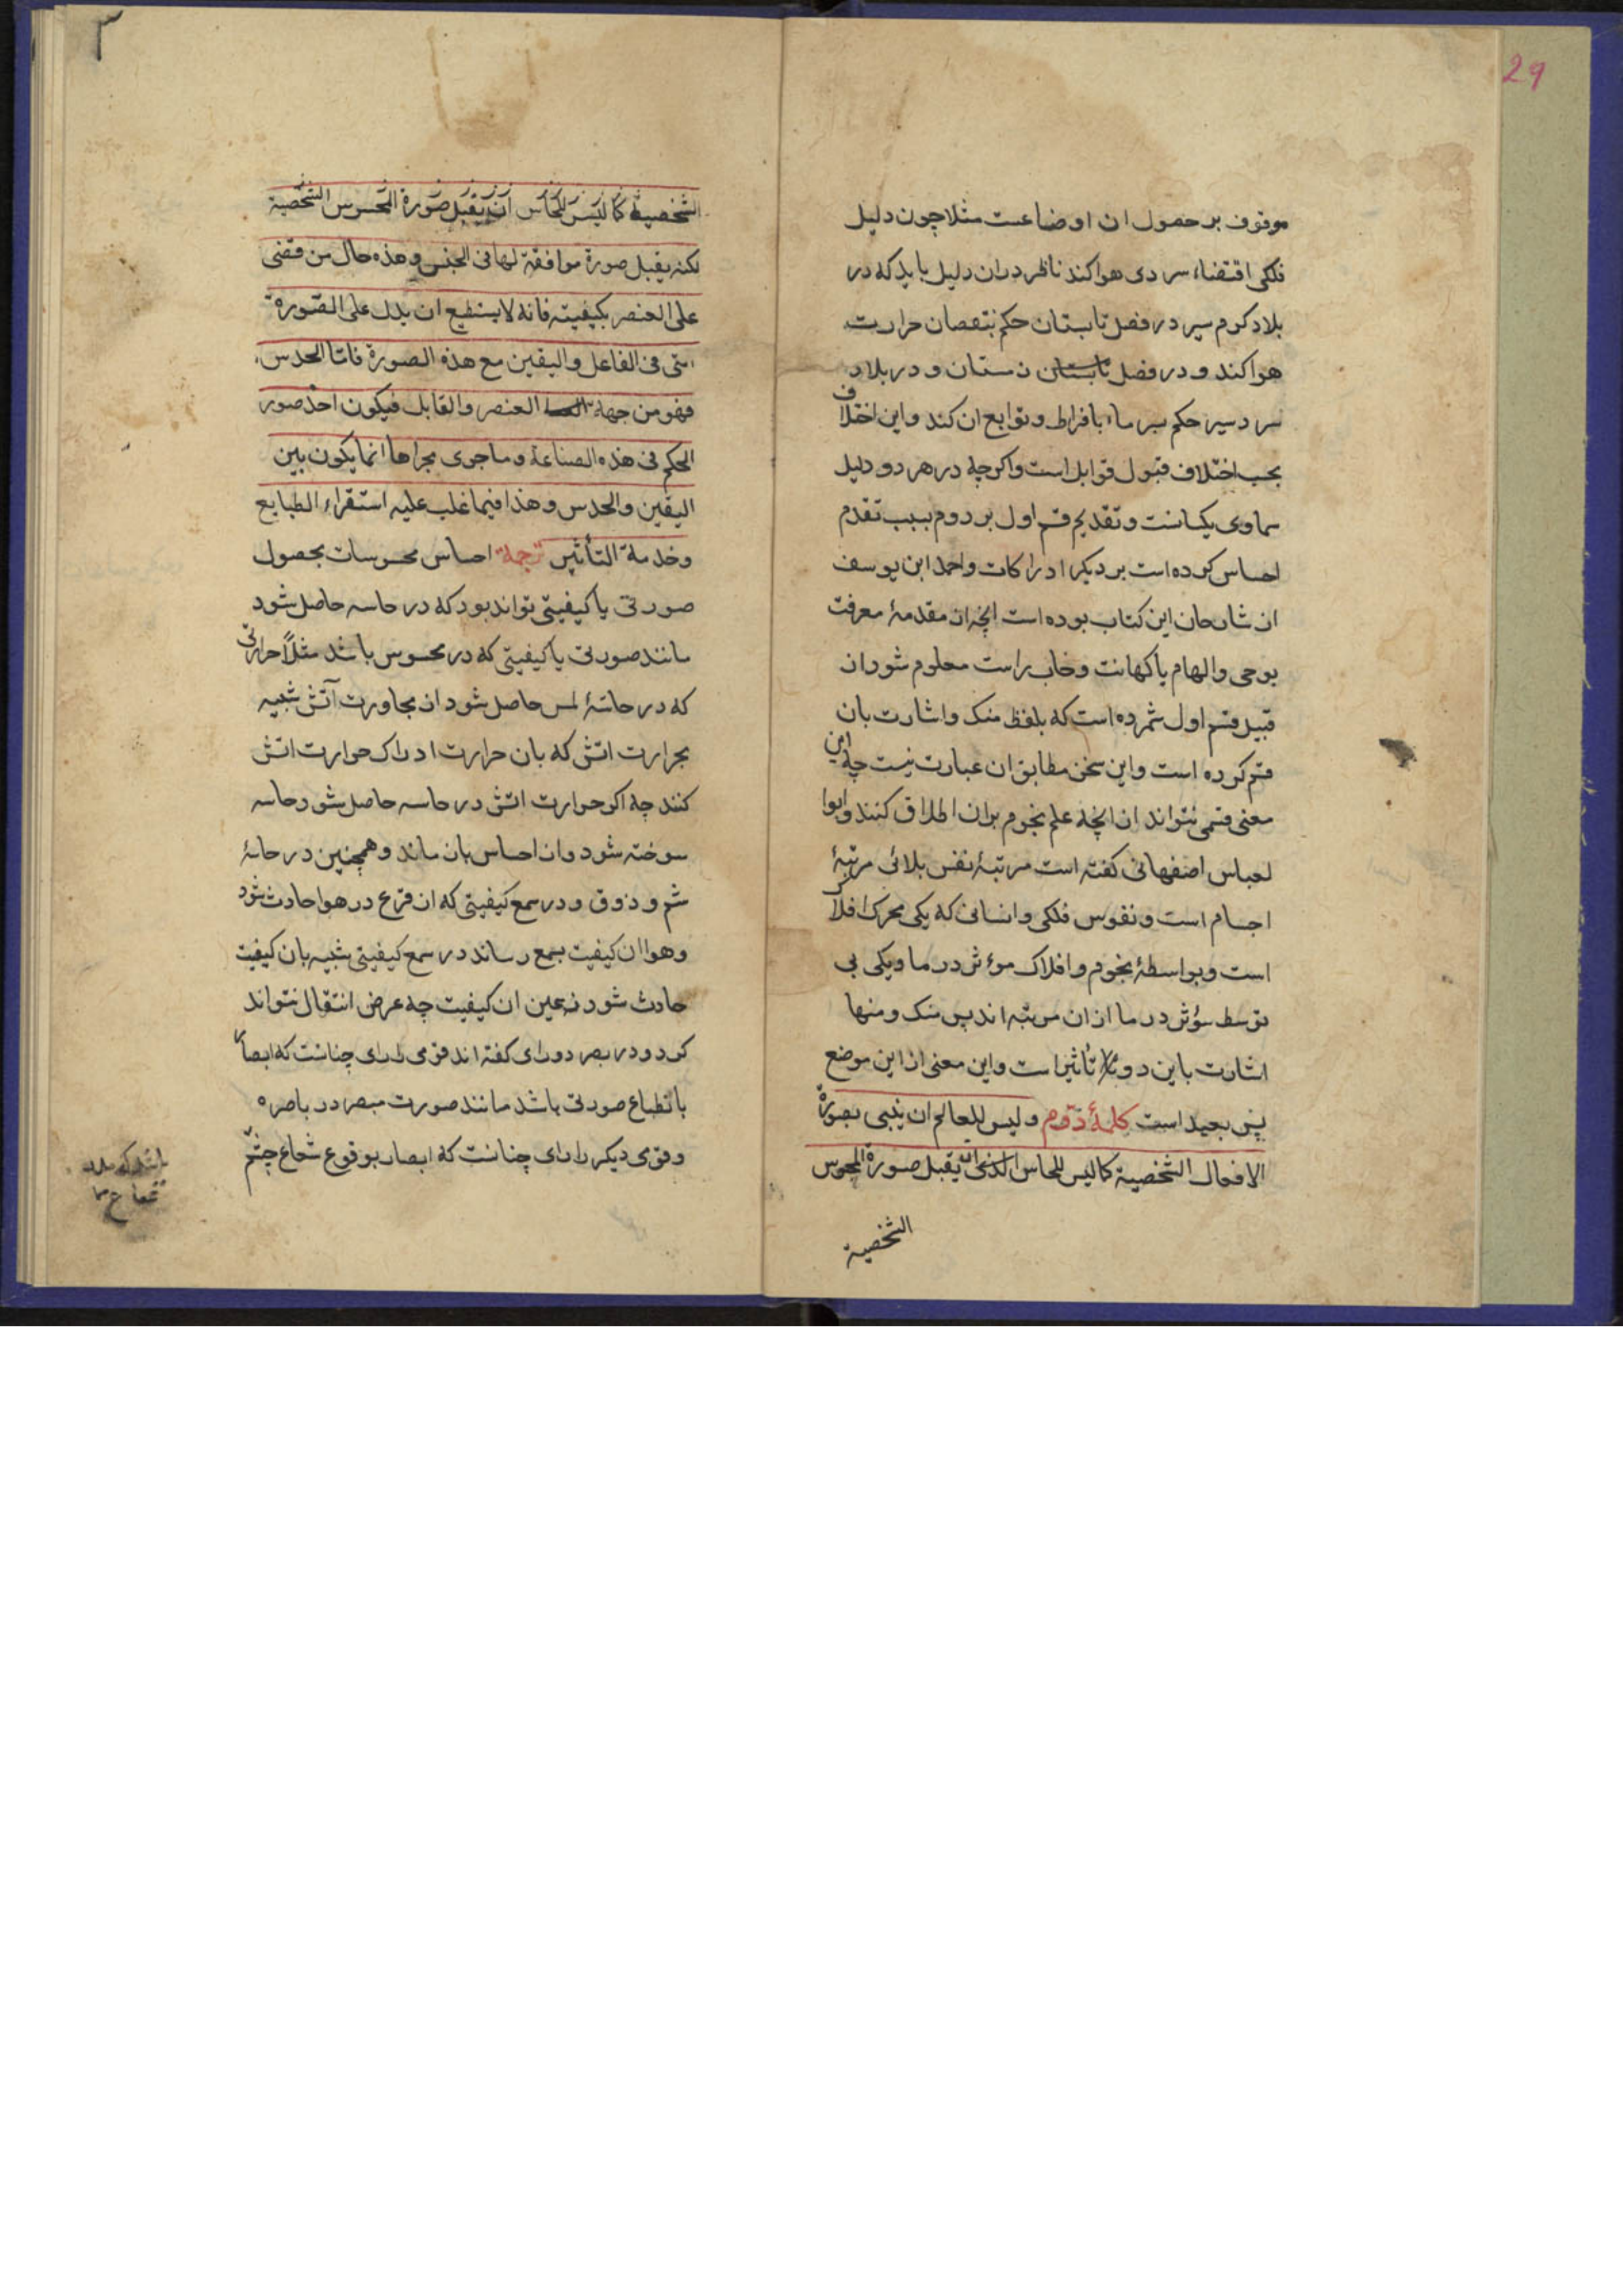 29
موقوف بر حصول ان اوضاعست مثلا چون دلیل
فلکی اقتضاء سردی هوا کند ناظر در ان دلیل باید که در
بلاد کرم سیر در فصل تابستان حکم بنقصان حرارت
هوا کند و در فصل تابستان زمستان و در بلاد
سردسیر حکم سرما بافراط و توابع ان کند و این اختلاف
بحسب اختلاف قبول قوابل است واکرچه در هر دو دلیل
سماوی یکسانست و تقدیم قسم اول بر دوم بسبب تقدم
احساس کرده است بر دیکر ادراکات و احمد ابن یوسف
از شارحان این کتاب بوده است انچه از مقدمهٔ معرفت
بوحی و الهام یا کهانت و خاب راست معلوم شود از
قبیل قسم اول شمرده است که بلفظ منک و اشارت بان
قسم کرده است و این سخن مطابق ان عبارت نیست چه این
معنی قسمی نتواند از انچه علم نجوم بران اطلاق کنند و ابوا
لعباس اصفهانی کفته است مرتبهٔ نفس بلائی مرتبهٔ
اجسام است و نفوس فلکی و انسانی که یکی محرک افلاک
است و بواسطهٔ نجوم و افلاک موءثر در ما و یکی بی
توسط مؤثر در ما از ان مرتبه اند پس منک و منها
اشارت باین دو تاثیر است و این معنی از این موضع
پس بعید است کلمهٔ دوم ولیس للعالم ان ینبی بصورة
الافعال الشخصیة کما لیس للحاس ان یقبل صورة المحسوس
الشخصیة
۳
الشخصیة کما لیس للحاس ان یقبل صورة المحسوس الشخصیة
لکنه یقبل صورة موافقة لها فی الجنس وهذه حال من قضی
علی العنصر بکیفیته فانه لا یستطیع ان یدل علی الصورة
التی فی الفاعل والیقین مع هذه الصورة فاما الحدس
فهو من جهة العنصر والقابل فیکون اخذ صور
الحکم فی هذه الصناعة وما جری مجراها انما یکون بین
الیقین والحدس وهذا فیما غلب علیه استقراء الطبایع
وخدمة التأثیر ترجمة احساس محسوسات بحصول
صورتی یا کیفیتی تواند بود که در حاسه حاصل شود
مانند صورتی یا کیفیتی که در محسوس باشد مثلاً حرارتی
که در حاسهٔ لمس حاصل شود از مجاورت آتش شبیه
بحرارت اتش که بان حرارت ادراک حرارت اتش
کنند چه اکر حرارت اتش در حاسه حاصل شود حاسه
سوخته شود و از احساس باز ماند و همچنین در حاسهٔ
شم و ذوق و در سمع کیفیتی که از قرع در هوا حادث شود
و هوا ان کیفیت بسمع رساند در سمع کیفیتی شبیه بان کیفیت
حادث شود نه عین ان کیفیت چه عرض انتقال نتواند
کرد و در بصر دو رای کفته اند قومی را رای چنانست که ابصار
بانطباع صورتی باشد مانند صورت مبصر در باصره
و قومی دیکر را رای چنانست که ابصار بوقوع شعاع چشم
باشد که
شعاع